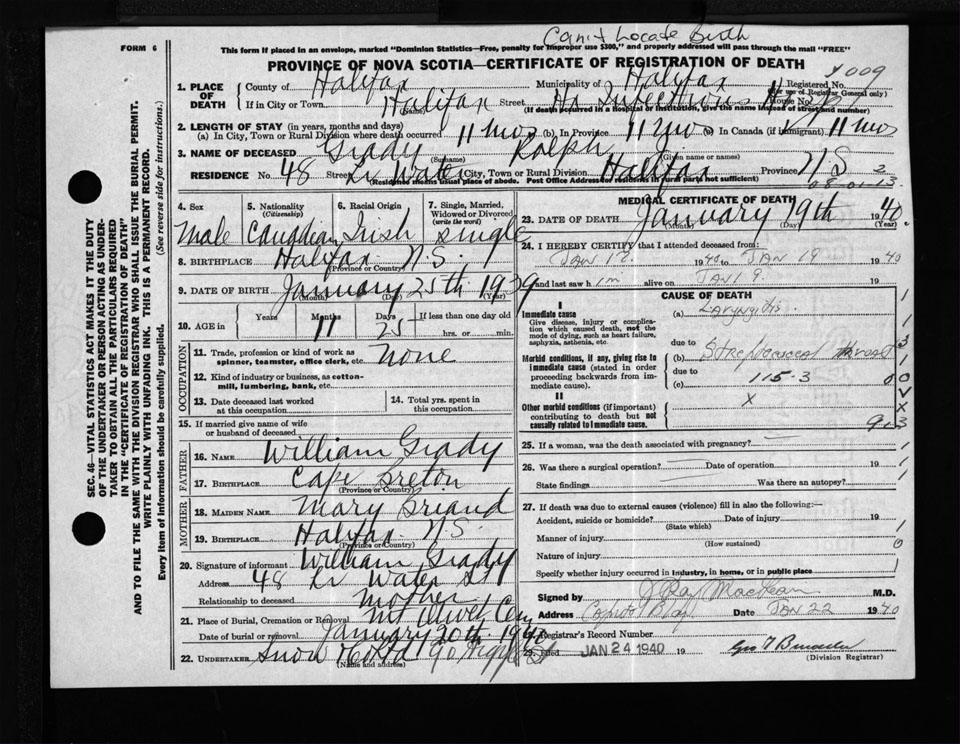 Can't Locate Birth
FORM 6
This form if placed in an envelope, marked "Dominion Statistics—Free, penalty for improper use $300," and properly addressed will pass through the mail "FREE"
PROVINCE OF NOVA SCOTIA—CERTIFICATE OF REGISTRATION OF DEATH
1. PLACE OF DEATH
County of Halifax Municipality of Halifax Registered No. 009
(For use of Registrar General only)
If in City or Town Halifax Street Infectious House No.
(Name) (If death occurred in a hospital or institution, give the name instead of street and number)
2. LENGTH OF STAY (in years, months and days)
(a) In City, Town or Rural Division where death occurred 11 mos (b) In Province 11 mo (c) In Canada (if immigrant) 11 mos
3. NAME OF DECEASED Grady Ralph
(Surname) (Given name or names)
RESIDENCE No. 48 Street Lr Water City, Town or Rural Division Halifax Province N.S.
(Residence means usual place of abode. Post Office Address for residents in rural parts not sufficient)
4. Sex Male
5. Nationality (Citizenship) Canadian
6. Racial Origin Irish
7. Single, Married, Widowed or Divorced (write the word) Single
8. BIRTHPLACE Halifax N.S.
(Province or Country)
9. DATE OF BIRTH January 25th 1939
(Month) (Day) (Year)
10. AGE in Years Months 11 Days 25 If less than one day old hrs. or min.
OCCUPATION
11. Trade, profession or kind of work as spinner, teamster, office clerk, etc. None
12. Kind of industry or business, as cotton-mill, lumbering, bank, etc.
13. Date deceased last worked at this occupation
14. Total yrs. spent in this occupation
15. If married give name of wife or husband of deceased
FATHER
16. NAME William Grady
17. BIRTHPLACE Cape Breton
(Province or Country)
MOTHER
18. MAIDEN NAME Mary Briand
19. BIRTHPLACE Halifax N.S.
(Province or Country)
20. Signature of informant William Grady
Address 48 Lr Water St
Relationship to deceased Mother
21. Place of Burial, Cremation or Removal Mt Olivet Cem
Date of burial or removal January 20th 1940
22. UNDERTAKER Snow & Co Ltd 90 Argyle St
(Name and address)
MEDICAL CERTIFICATE OF DEATH
23. DATE OF DEATH January 19th 1940
(Month) (Day) (Year)
24. I HEREBY CERTIFY that I attended deceased from:
1940 to JAN 19 1940
and last saw him alive on JAN 19
CAUSE OF DEATH
I
Immediate cause
Give disease, injury or complication which caused death, not the mode of dying, such as heart failure, asphyxia, asthenia, etc.
(a) Laryngitis
due to
Morbid conditions, if any, giving rise to immediate cause (stated in order proceeding backwards from immediate cause).
(b) Streptococcal throat
due to
(c) 115-3
II
Other morbid conditions (if important) contributing to death but not causally related to immediate cause.
X
25. If a woman, was the death associated with pregnancy?
26. Was there a surgical operation? Date of operation 19
State findings Was there an autopsy?
27. If death was due to external causes (violence) fill in also the following:—
Accident, suicide or homicide? Date of injury 19
(State which)
Manner of injury
(How sustained)
Nature of injury
Specify whether injury occurred in industry, in home, or in public place
Signed by J Ray MacLean M.D.
Address Date JAN 22 1940
28. Registrar's Record Number
29. Filed JAN 24 1940 19
(Division Registrar)
SEC. 46—VITAL STATISTICS ACT MAKES IT THE DUTY
OF THE UNDERTAKER OR PERSON ACTING AS UNDERTAKER TO OBTAIN ALL THE PARTICULARS REQUIRED
IN THE "CERTIFICATE OF REGISTRATION OF DEATH"
AND TO FILE THE SAME WITH THE DIVISION REGISTRAR WHO SHALL ISSUE THE BURIAL PERMIT.
WRITE PLAINLY WITH UNFADING INK. THIS IS A PERMANENT RECORD.
Every item of information should be carefully supplied. (See reverse side for instructions.)